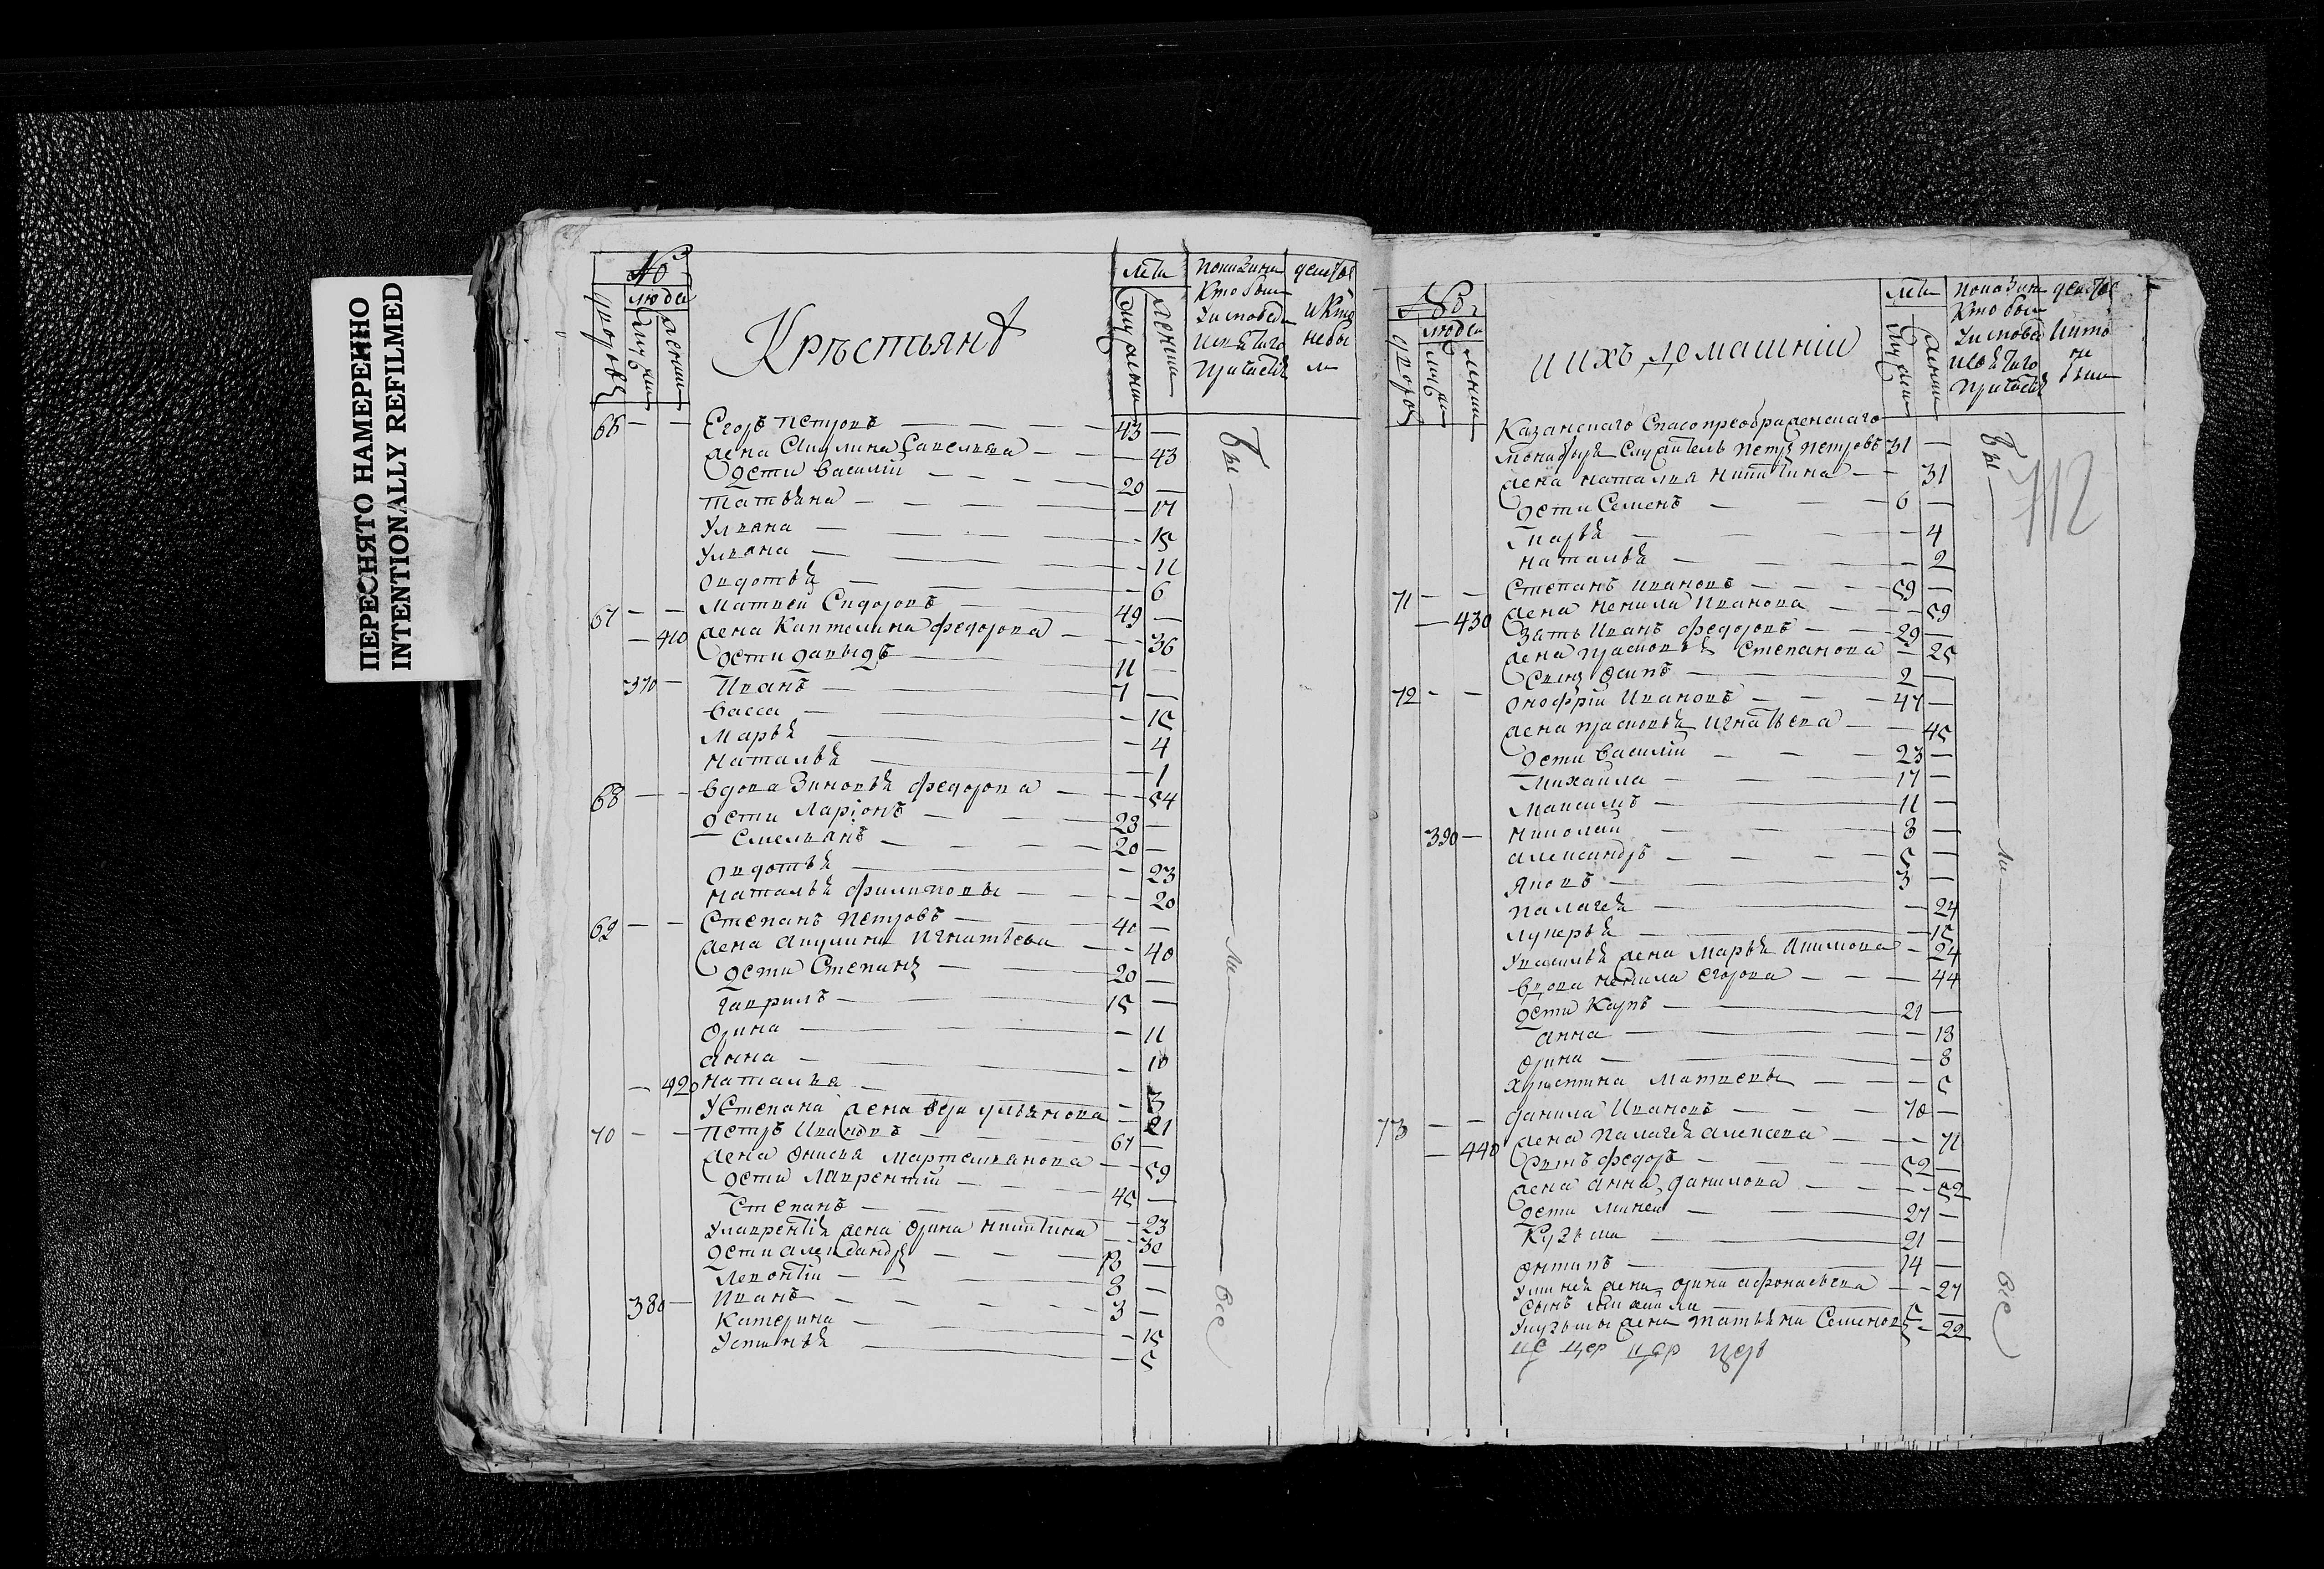 ПЕРЕСНЯТО НАМЕРЕННО
INTENTIONALLY REFILMED
№
люде
Крѣстьянѣ
лѣта
66 — — Егоръ Петровъ — 43 —
жена Акулина Савельева — 43
дѣти Василій — 20 —
Татьяна — 17
Ульяна — 15
Ульяна — 11
Овдотья — 6
67 — — Матвей Сидоровъ — 49 —
— 410 жена Каптелина Федорова — 36
дѣти Давыдъ — 11 —
370 — Иванъ — 7 —
Васса — 15
Марья — 4
Наталья — 1
68 — — Вдова Зиновья Федорова — 54
дѣти Ларіонъ — 28 —
Емельянъ — 20 —
Овдотья — 23
Наталья Филиповы — 20
69 — — Степанъ Петровъ — 40 —
жена Акулина Игнатьева — 40
дѣти Степанъ — 20 —
Гаврилъ — 15 —
Орина — 11
Анна — 10
— 420 Наталья — 3
У Степана жена Ульянова — 21
70 — — Петръ Ивановъ — 67 —
жена Онисья Мартемьянова — 59
дѣти Лаврентій — 45 —
Степанъ — 23
У Лаврентія жена Орина Никитина — 30
дѣти Александръ — 13 —
Леонтій — 8 —
380 — Иванъ — 3 —
Катерина — 15
Устинья — 5
Бы — ли — Все
№
люде
и ихъ домашніи
лѣта
Казанскаго Спасопреображенскаго
монастыря Служитель Петръ Петровъ 31 —
жена Наталья Никитина — 31
дѣти Семенъ — 6 —
Дарья — 4
Наталья — 2
71 — — Степанъ Ивановъ — 59 —
— 430 жена Ненила Иванова — 59
Зять Иванъ Федоровъ — 29 —
жена Прасковья Степанова — 25
Сынъ Осипъ — 2 —
72 — — Онофрій Ивановъ — 47 —
жена Прасковья Игнатьева — 45
дѣти Василій — 23 —
Михайла — 17 —
Максимъ — 11 —
390 — Николай — 8 —
Александръ — 5 —
Яковъ — 3 —
Палагея — 24
Лукерья — 15
У Василья жена Марья Акимова — 24
Вдова Ненила Егорова — 44
дѣти Карпъ — 21 —
Анна — 13
Орина — 8
Матвевы — 5
73 — — Данила Ивановъ — 70 —
— 440 жена Палагея Алексева — 71
Сынъ Федоръ — 52 —
жена Анна Данилова — 52
дѣти Миней — 27 —
Кузьма — 21 —
Онтипъ — 14 —
У Минея жена Орина Афонасьева — 27
Сынъ Михайла — 5 —
У Кузьмы жена Татьяна Семенова — 22
Бы — ли — Все
712